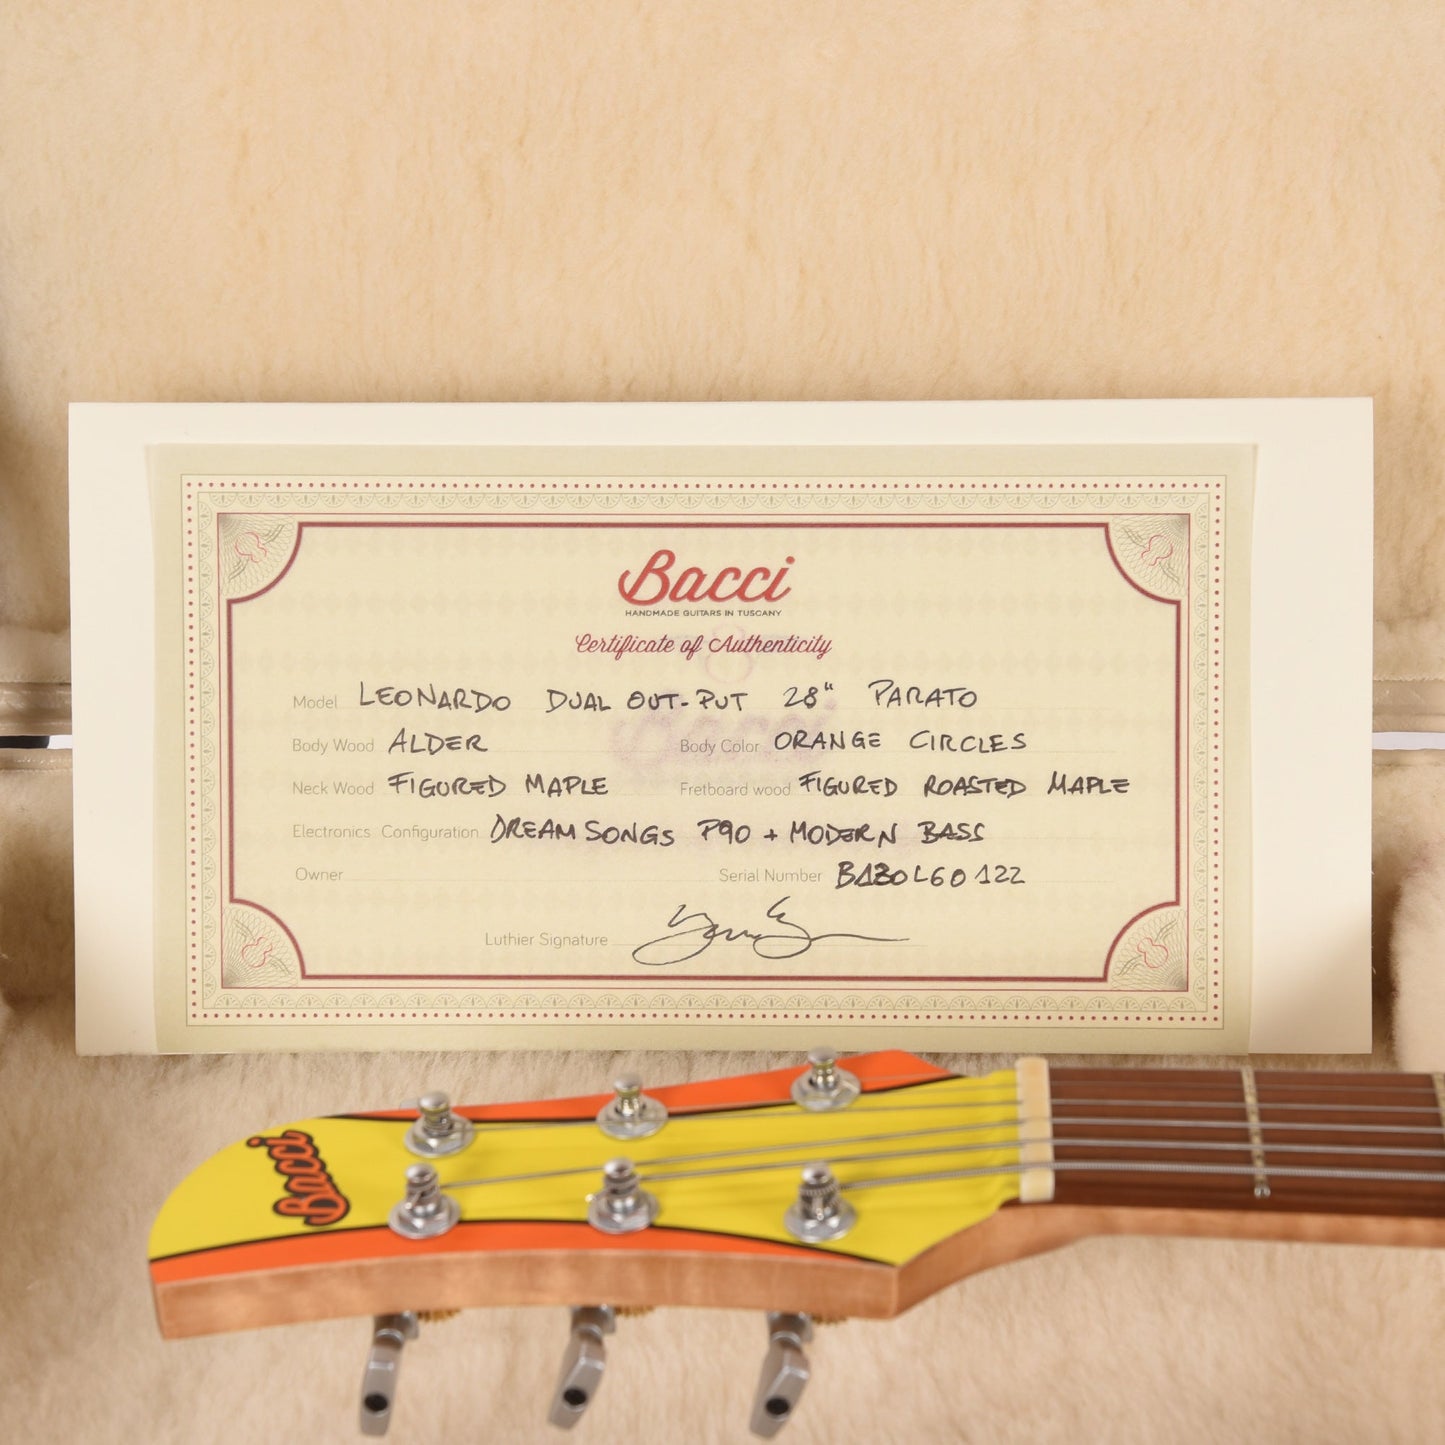 Bacci
HANDMADE GUITARS IN TUSCANY
Certificate of Authenticity
Model LEONARDO DUAL OUT-PUT 28" PARATO
Body Wood ALDER Body Color ORANGE CIRCLES
Neck Wood FIGURED MAPLE Fretboard wood FIGURED ROASTED MAPLE
Electronics Configuration DREAMSONGS P90 + MODERN BASS
Owner Serial Number BA30L60122
Luthier Signature
Bacci